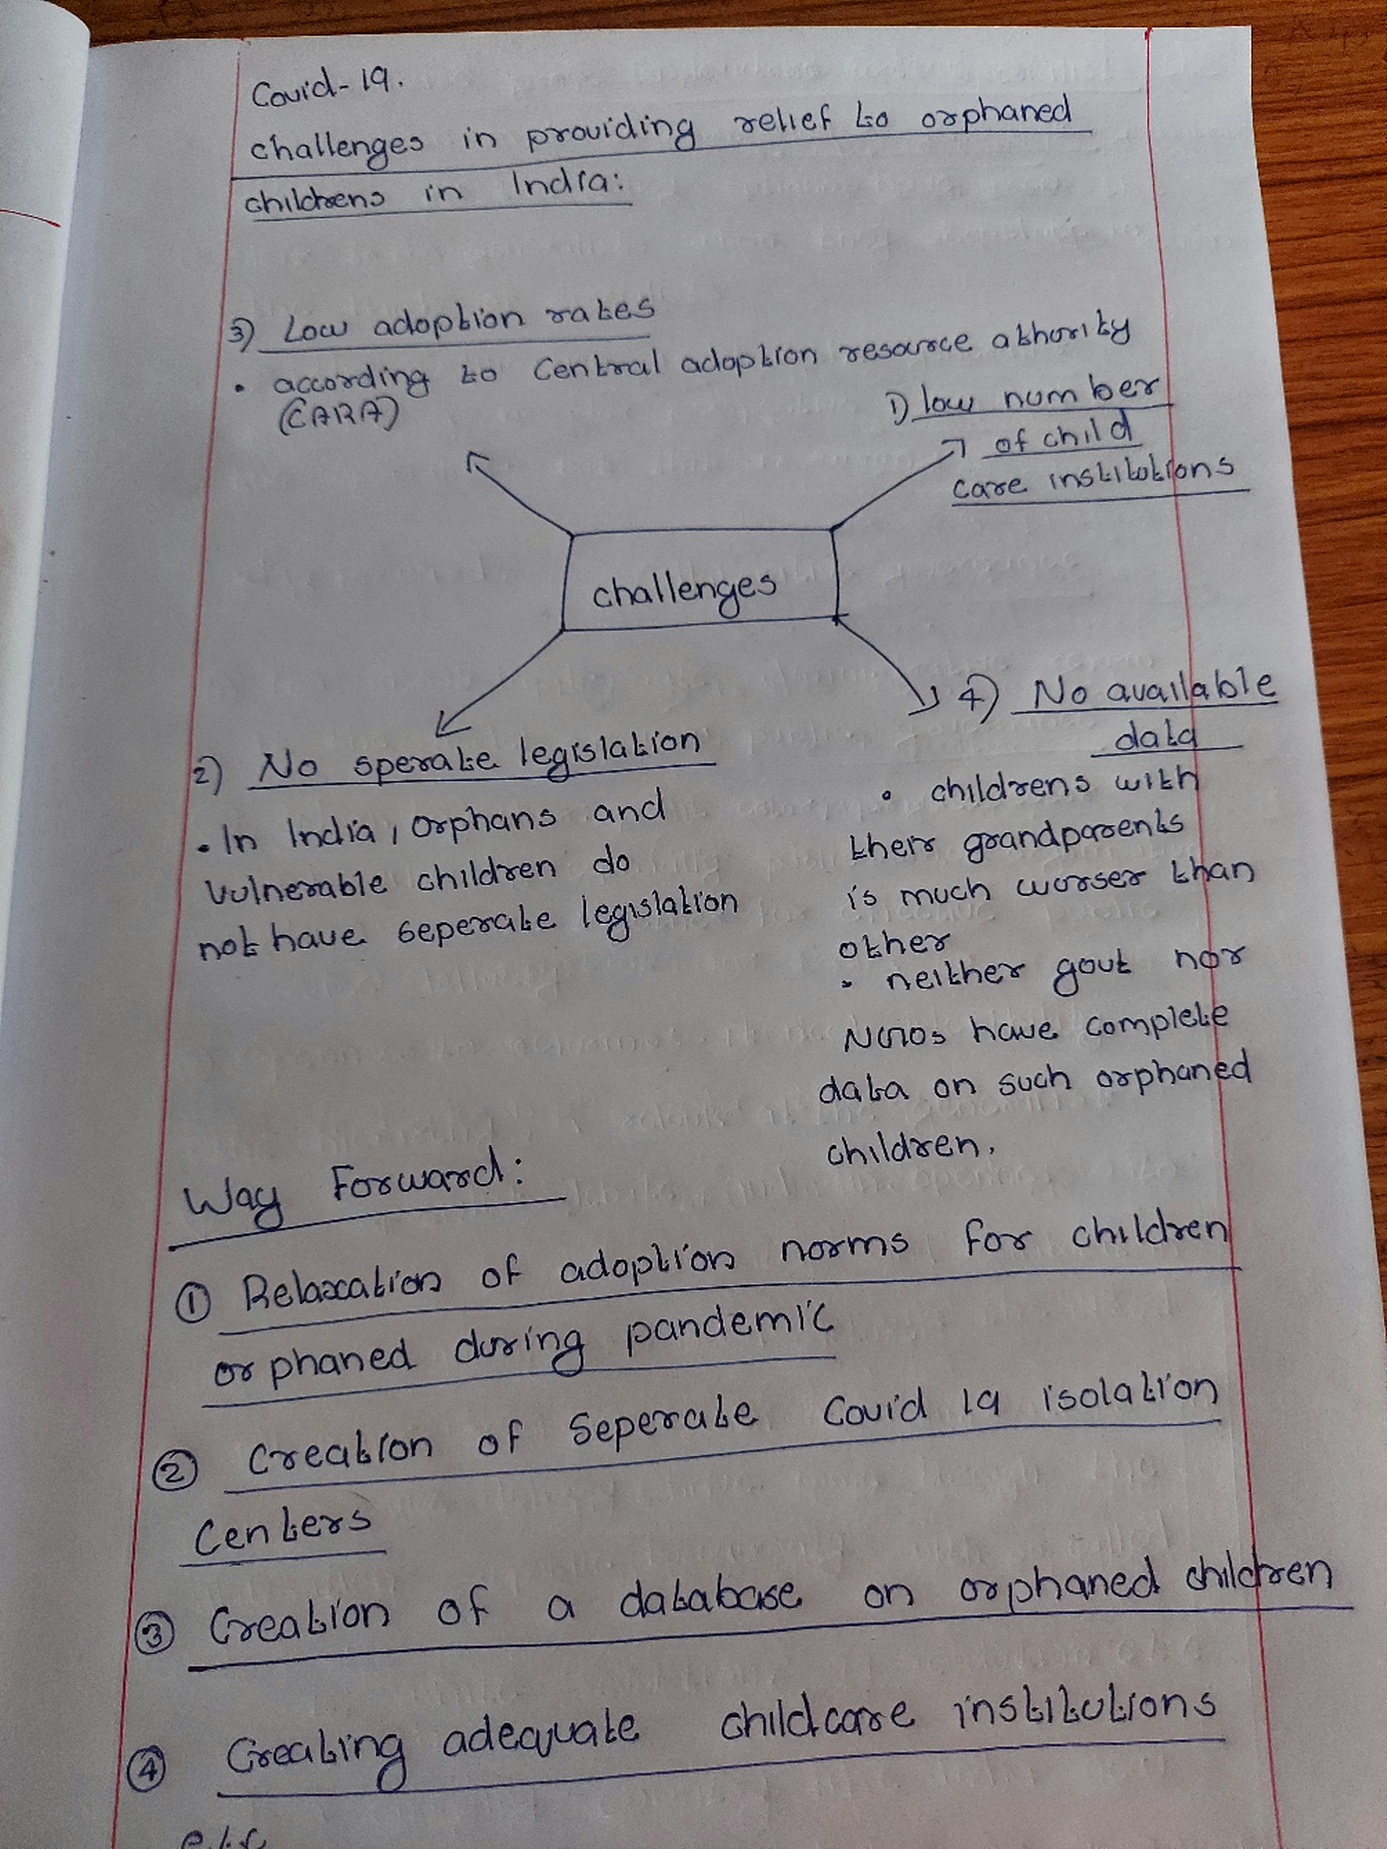 Covid-19.
challenges in providing relief to orphaned
childrens in India:
3) Low adoption rates
• according to Central adoption resource athority
(CARA)
1) low number
of child
care institutions
challenges
2) No sperate legislation
• In India, orphans and
vulnerable children do
not have seperate legislation
4) No available
data
• childrens with
their grandparents
is much worser than
other
• neither govt nor
NGOs have complete
data on such orphaned
children.
Way Forward:
① Relaxation of adoption norms for children
orphaned during pandemic
② Creation of Seperate Covid 19 isolation
Centers
③ Creation of a database on orphaned children
④ Creating adequate childcare institutions
etc